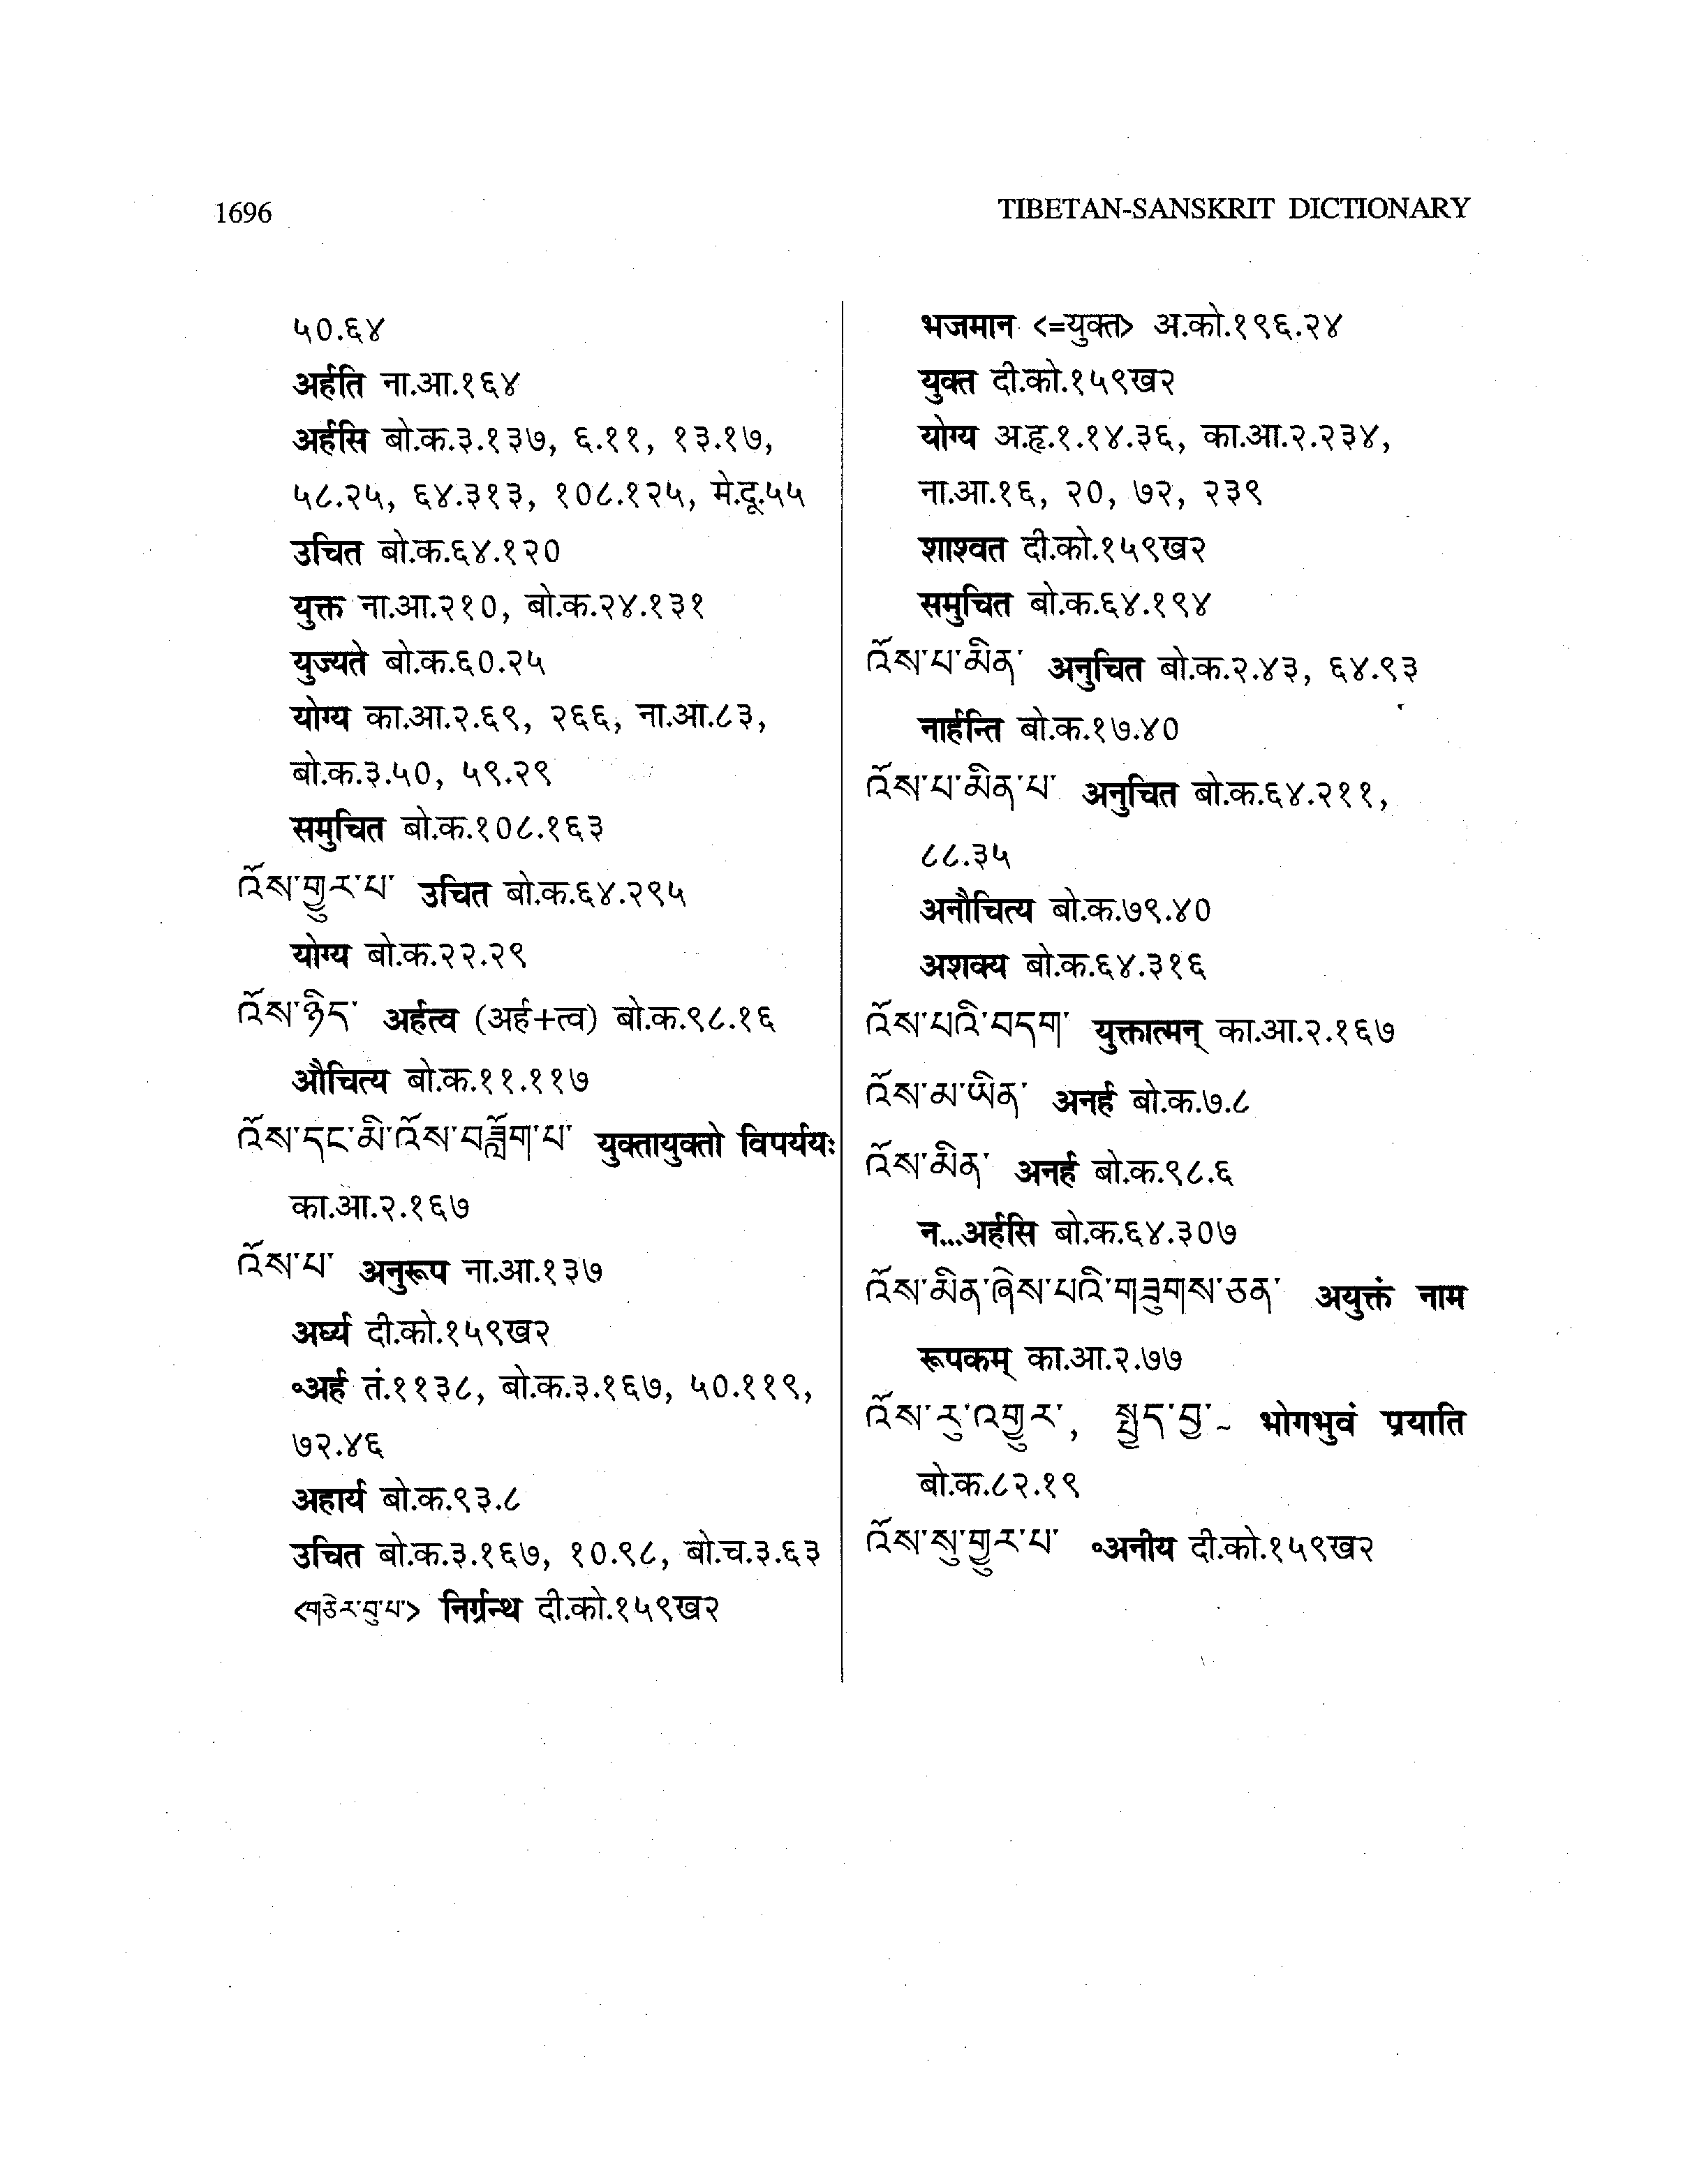 1696
TIBETAN-SANSKRIT DICTIONARY
५०.६४
अर्हति ना.आ.१६४
अर्हसि बो.क.३.१३७, ६.११, १३.१७,
५८.२५, ६४.३१३, १०८.१२५, मे.दू.५५
उचित बो.क.६४.१२०
युक्त ना.आ.२१०, बो.क.२४.१३१
युज्यते बो.क.६०.२५
योग्य का.आ.२.६९, २६६, ना.आ.८३,
बो.क.३.५०, ५९.२९
समुचित बो.क.१०८.१६३
འོས་གྱུར་པ་ उचित बो.क.६४.२९५
योग्य बो.क.२२.२९
འོས་ཉིད་ अर्हत्व (अर्ह+त्व) बो.क.९८.१६
औचित्य बो.क.११.११७
འོས་དང་མི་འོས་བཟློག་པ་ युक्तायुक्तो विपर्ययः
का.आ.२.१६७
འོས་པ་ अनुरूप ना.आ.१३७
अर्घ्य दी.को.१५९ख२
॰अर्ह तं.११३८, बो.क.३.१६७, ५०.११९,
७२.४६
अहार्य बो.क.९३.८
उचित बो.क.३.१६७, १०.९८, बो.च.३.६३
<གཅེར་བུ་པ་> निर्ग्रन्थ दी.को.१५९ख२
भजमान <=युक्त> अ.को.१९६.२४
युक्त दी.को.१५९ख२
योग्य अ.हृ.१.१४.३६, का.आ.२.२३४,
ना.आ.१६, २०, ७२, २३९
शाश्वत दी.को.१५९ख२
समुचित बो.क.६४.१९४
འོས་པ་མིན་ अनुचित बो.क.२.४३, ६४.९३
नार्हन्ति बो.क.१७.४०
འོས་པ་མིན་པ་ अनुचित बो.क.६४.२११,
८८.३५
अनौचित्य बो.क.७९.४०
अशक्य बो.क.६४.३१६
འོས་པའི་བདག་ युक्तात्मन् का.आ.२.१६७
འོས་མ་ཡིན་ अनर्ह बो.क.७.८
འོས་མིན་ अनर्ह बो.क.९८.६
न...अर्हसि बो.क.६४.३०७
འོས་མིན་ཞེས་པའི་གཟུགས་ཅན་ अयुक्तं नाम
रूपकम् का.आ.२.७७
འོས་རུ་འགྱུར་, སྤྱད་བྱ་~ भोगभुवं प्रयाति
बो.क.८२.१९
འོས་སུ་གྱུར་པ་ ॰अनीय दी.को.१५९ख२